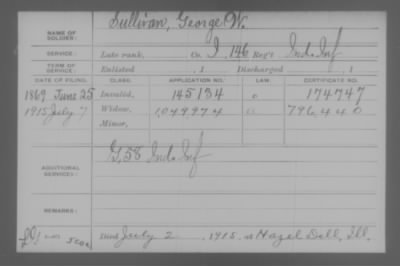 NAME OF SOLDIER: Sullivan, George W.
SERVICE: Late rank, Co. I, 146 Reg't Ind. Inf
TERM OF SERVICE: Enlisted , 1 Discharged , 1
DATE OF FILING. CLASS. APPLICATION NO. LAW. CERTIFICATE NO.
1869 June 25 Invalid, 145134 174747
1915 July 7 Widow, 1,049974 796,440
Minor,
ADDITIONAL SERVICES: G, 58 Ind. Inf
REMARKS:
Died July 2, 1915, at Hazel Dell, Ill.